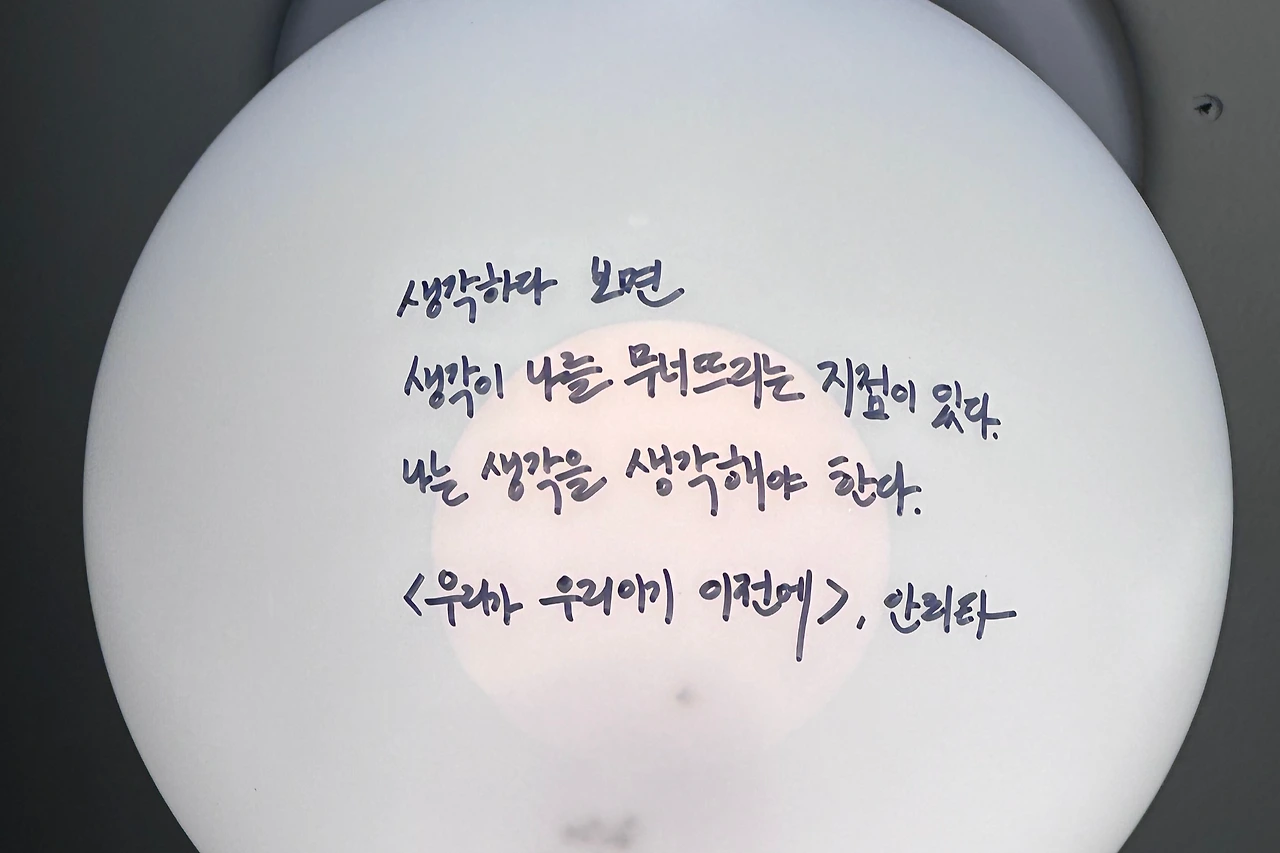 생각하다 보면
생각이 나를 무너뜨리는 지점이 있다.
나는 생각을 생각해야 한다.
<우리가 우리이기 이전에>, 안리타